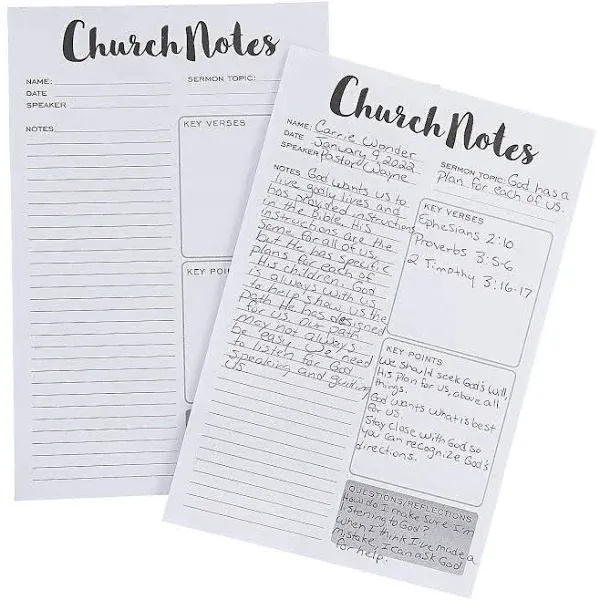 Church Notes
NAME:
DATE
SPEAKER
SERMON TOPIC:
NOTES
KEY VERSES
KEY POINTS
Church Notes
NAME: Carrie Wonder
DATE January 9, 2022
SPEAKER Pastor Wayne
SERMON TOPIC: God has a
Plan for each of us.
NOTES God wants us to
live godly lives and
has provided instructions
in the Bible. His
instructions are the
same for all of us,
but He has specific
plans for each of
His children. God
is always with us
to help show us the
path He has designed
for us. Our path
may not always
be easy. We need
to listen for God
speaking and guiding
us.
KEY VERSES
Ephesians 2:10
Proverbs 3:5-6
2 Timothy 3:16-17
KEY POINTS
We should seek God's Will,
His Plan for us, above all
things.
God wants what is best
for us.
Stay close with God so
you can recognize God's
directions.
QUESTIONS/REFLECTIONS
How do I make sure I'm
listening to God?
When I think I've made a
mistake I can ask God
for help.